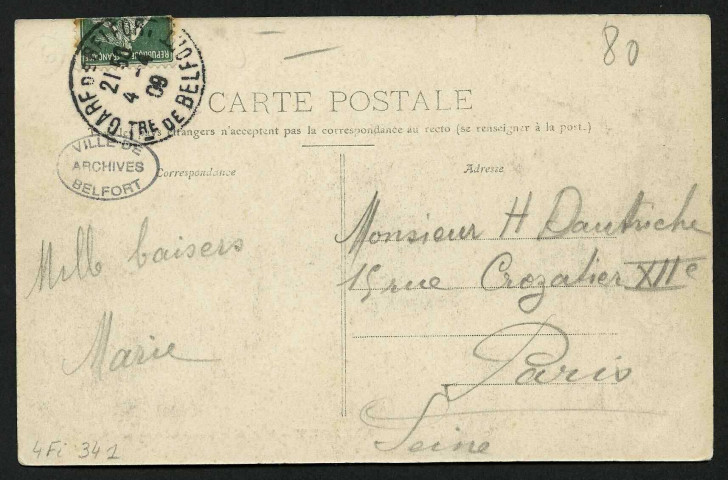 80
REPUBLIQUE FRANCAISE
GARE DE BELFORT
21
4-4
09
TRE DE BELFORT
CARTE POSTALE
étrangers n'acceptent pas la correspondance au recto (se renseigner à la post.)
VILLE DE
ARCHIVES
BELFORT
Correspondance
Adresse
Mille baisers
Marie
Monsieur H Dautriche
15 rue Crozatier XIIe
Paris
Seine
4Fi 341